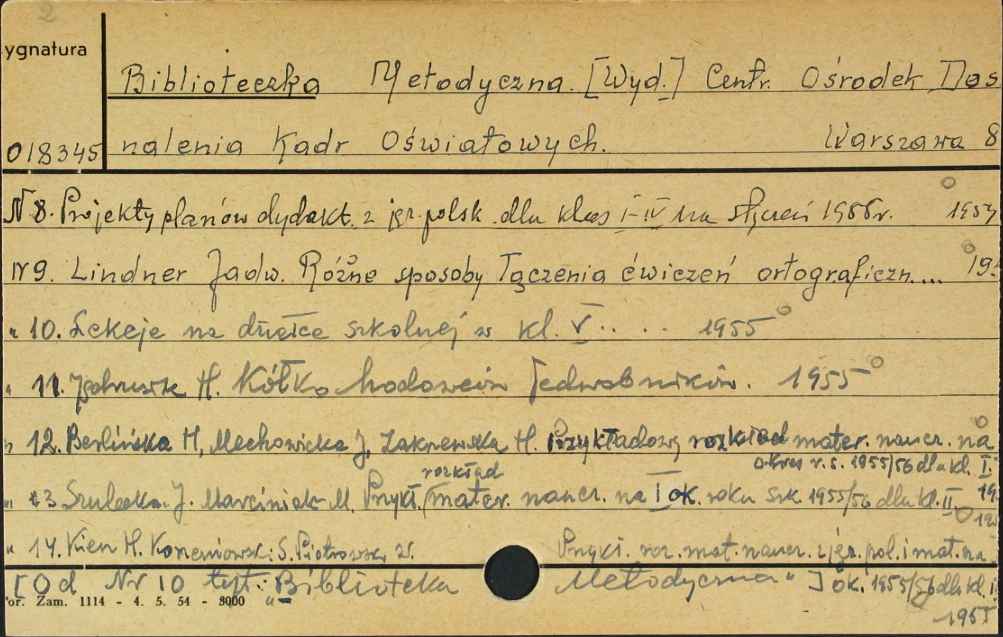 2
ygnatura
Biblioteczka Metodyczna. [Wyd.] Centr. Ośrodek Dos
018345 nalenia Kadr Oświatowych. Warszawa 8
N 8. Projekty planów dydakt. z jęz. polsk. dla klas I-IV na styczeń 1955r. 1954
Nr 9. Lindner Jadw. Różne sposoby łączenia ćwiczeń ortograficzn.... 195
" 10. Lekcje na działce szkolnej w kl. V.. .. 1955
" 11. H. Kółko hodowców jedwabników. 1955
" 12. Berlińska H, Mechowicka J, Zakrzewska H. Przykładowy rozkład mater. naucz. na
okres r. s. 1955/56 dla kl. I.
rozkład
" 13 Szulecka J. Marciniak M. Przykł. mater. naucz. na I ok. roku szk 1955/56 dla kl. II. 195
195
" 14. Kien H. Korzeniowski S. Piotrowski W. Przykł. roz. mat. naucz. z jęz. pol. i mat. na
[Od Nr 10 tyt.: "Biblioteka Metodyczna"] ok. 1955/56 dla kl. I
or. Zam. 1114 - 4. 5. 54 - 8000
1955